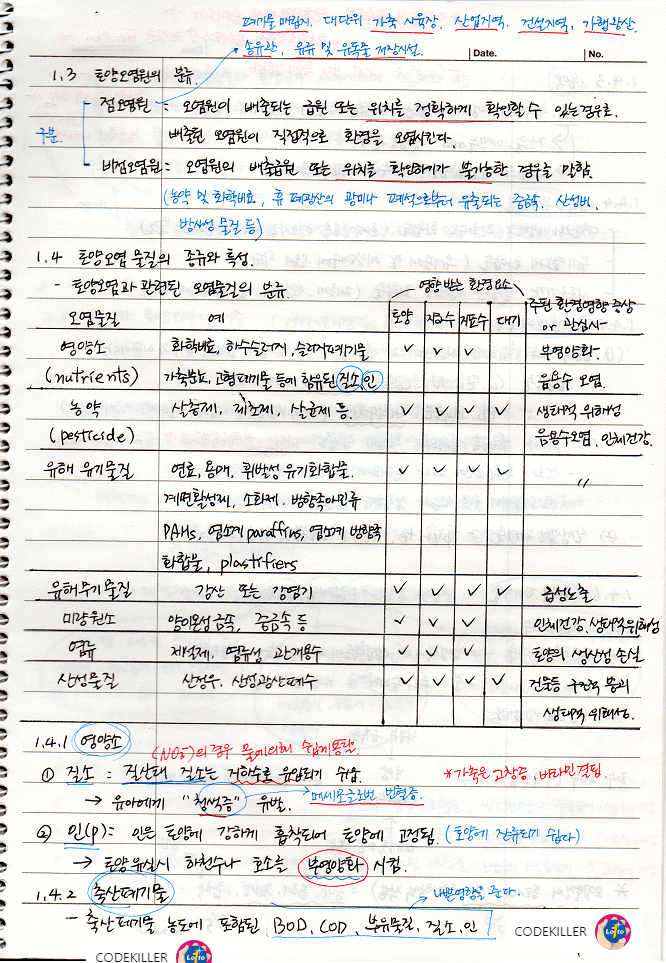 폐기물 매립지. 대단위 가축 사육장. 산업지역. 건설지역, 가행광산.
송유관, 유류 및 유독물 저장시설.
Date.
No.
1.3 토양오염원의 분류.
구분.
점오염원 : 오염원이 배출되는 급원 또는 위치를 정확하게 확인할 수 있는 경우로.
배출원 오염원이 직접적으로 환경을 오염시킨다.
비점오염원 : 오염원의 배출급원 또는 위치를 확인하기가 불가능한 경우를 말함.
(농약 및 화학비료, 휴폐광산의 광미나 폐석으로부터 유출되는 중금속, 산성비,
방사성 물질 등)
1.4 토양오염 물질의 종류와 특성.
- 토양오염과 관련된 오염물질의 분류.
영향 받는 환경요소
오염물질 예 토양 지하수 지표수 대기 주된 환경영향 증상
or 관심사
영양소 화학비료, 하수슬러지, 슬러지폐기물 ✓ ✓ 부영양화.
(nutrients) 가축분뇨, 고형폐기물 등에 함유된 질소, 인 음용수 오염.
농약 살충제, 제초제, 살균제 등. ✓ ✓ ✓ ✓ 생태적 위해성
(pesticide) 음용수오염, 인체건강.
유해 유기물질 연료, 용매, 휘발성 유기화합물. ✓ ✓ ✓ ✓ 〃
계면활성제, 소화제. 방향족아민류
PAHs, 염소계 paraffins, 염소계 방향족
화합물, plastifiers
유해무기물질 강산 또는 강염기 ✓ ✓ ✓ ✓ 급성노출
미량원소 양이온성 금속, 중금속 등 ✓ ✓ ✓ 인체건강, 생태적위해성
염류 제설제, 염류성 관개용수 ✓ ✓ ✓ 토양의 생산성 손실
산성물질 산성우, 산성광산폐수 ✓ ✓ ✓ ✓ 건물등 구조적 붕괴
생태적 위해성.
1.4.1 영양소
(NO₃⁻)의 경우 물에 의해 쉽게 용탈.
① 질소 : 질산태 질소는 지하수로 유입되기 쉬움.
*가축은 고창증, 비타민 결핍
→ 유아에게 "청색증" 유발.
메세모글로빈 빈혈증.
② 인(P) : 인은 토양에 강하게 흡착되어 토양에 고정됨. (토양에 잔류되기 쉽다)
→ 토양유실시 하천수나 호소를 부영양화 시킴.
1.4.2 축산폐기물
나쁜영향을 준다.
- 축산폐기물 농도에 포함된, BOD, COD, 부유물질, 질소, 인
CODEKILLER
Lotto
CODEKILLER
Lotto